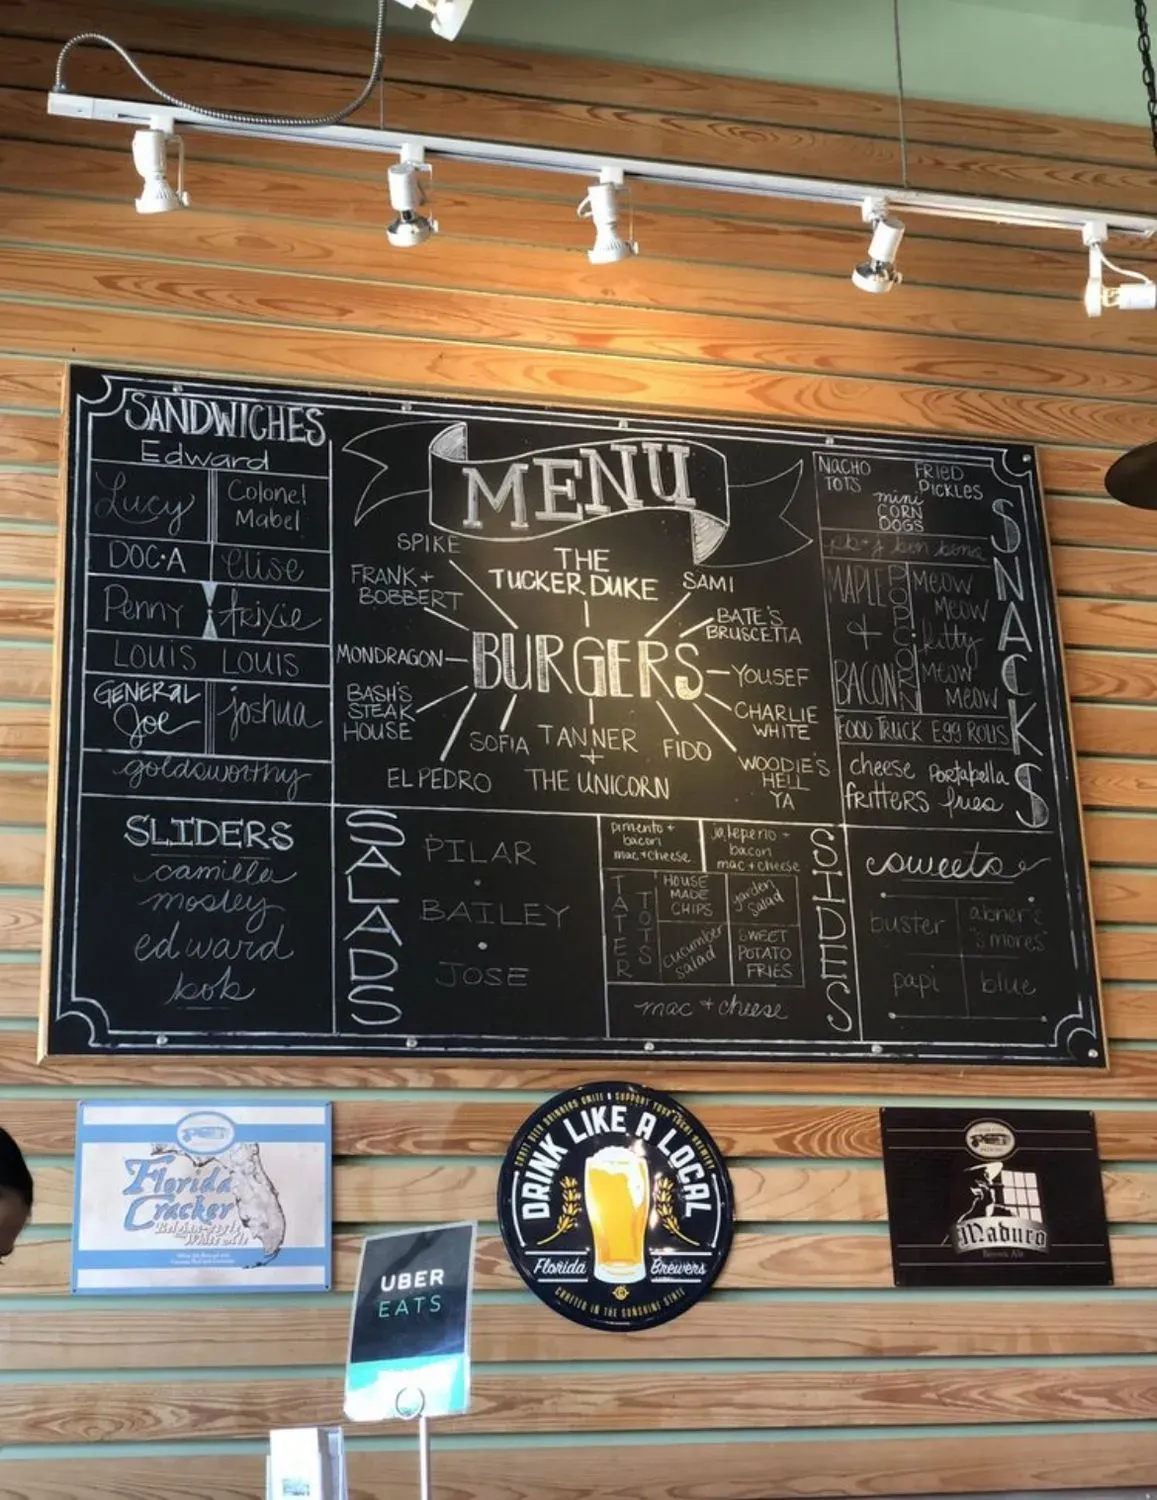 SANDWICHES
Edward
Lucy
Colonel
Mabel
DOC·A
elise
Penny
trixie
LOUIS
LOUIS
GENERAL
Joe
joshua
goldsworthy
MENU
SPIKE
THE
TUCKER DUKE
SAMI
FRANK +
BOBBERT
BATE'S
BRUSCETTA
MONDRAGON
BURGERS
YOUSEF
BASH'S
STEAK
HOUSE
CHARLIE
WHITE
SOFIA
TANNER
+
THE UNICORN
FIDO
EL PEDRO
WOODIE'S
HELL
YA
NACHO
TOTS
FRIED
PICKLES
mini
CORN
DOGS
pb+j bon bons
SNACKS
MAPLE
+
BACON
POPCORN
MEOW
MEOW
kitty
MEOW
MEOW
FOOD TRUCK EGG ROLLS
cheese
FRITTERS
portabella
fries
SLIDERS
camilla
mosley
edward
bob
SALADS
PILAR
BAILEY
JOSE
pimento +
bacon
mac + cheese
jalepeño +
bacon
mac + cheese
SIDES
TATER
TOTS
HOUSE
MADE
CHIPS
garden
salad
cucumber
salad
SWEET
POTATO
FRIES
mac + cheese
sweets
buster
abner's
"s'mores"
papi
blue
Florida
Cracker
Belgian-style
White ale
CRAFT BEER DRINKERS UNITE & SUPPORT YOUR LOCAL BREWERY
DRINK LIKE A LOCAL
Florida Brewers
CRAFTED IN THE SUNSHINE STATE
Maduro
Brown Ale
UBER
EATS